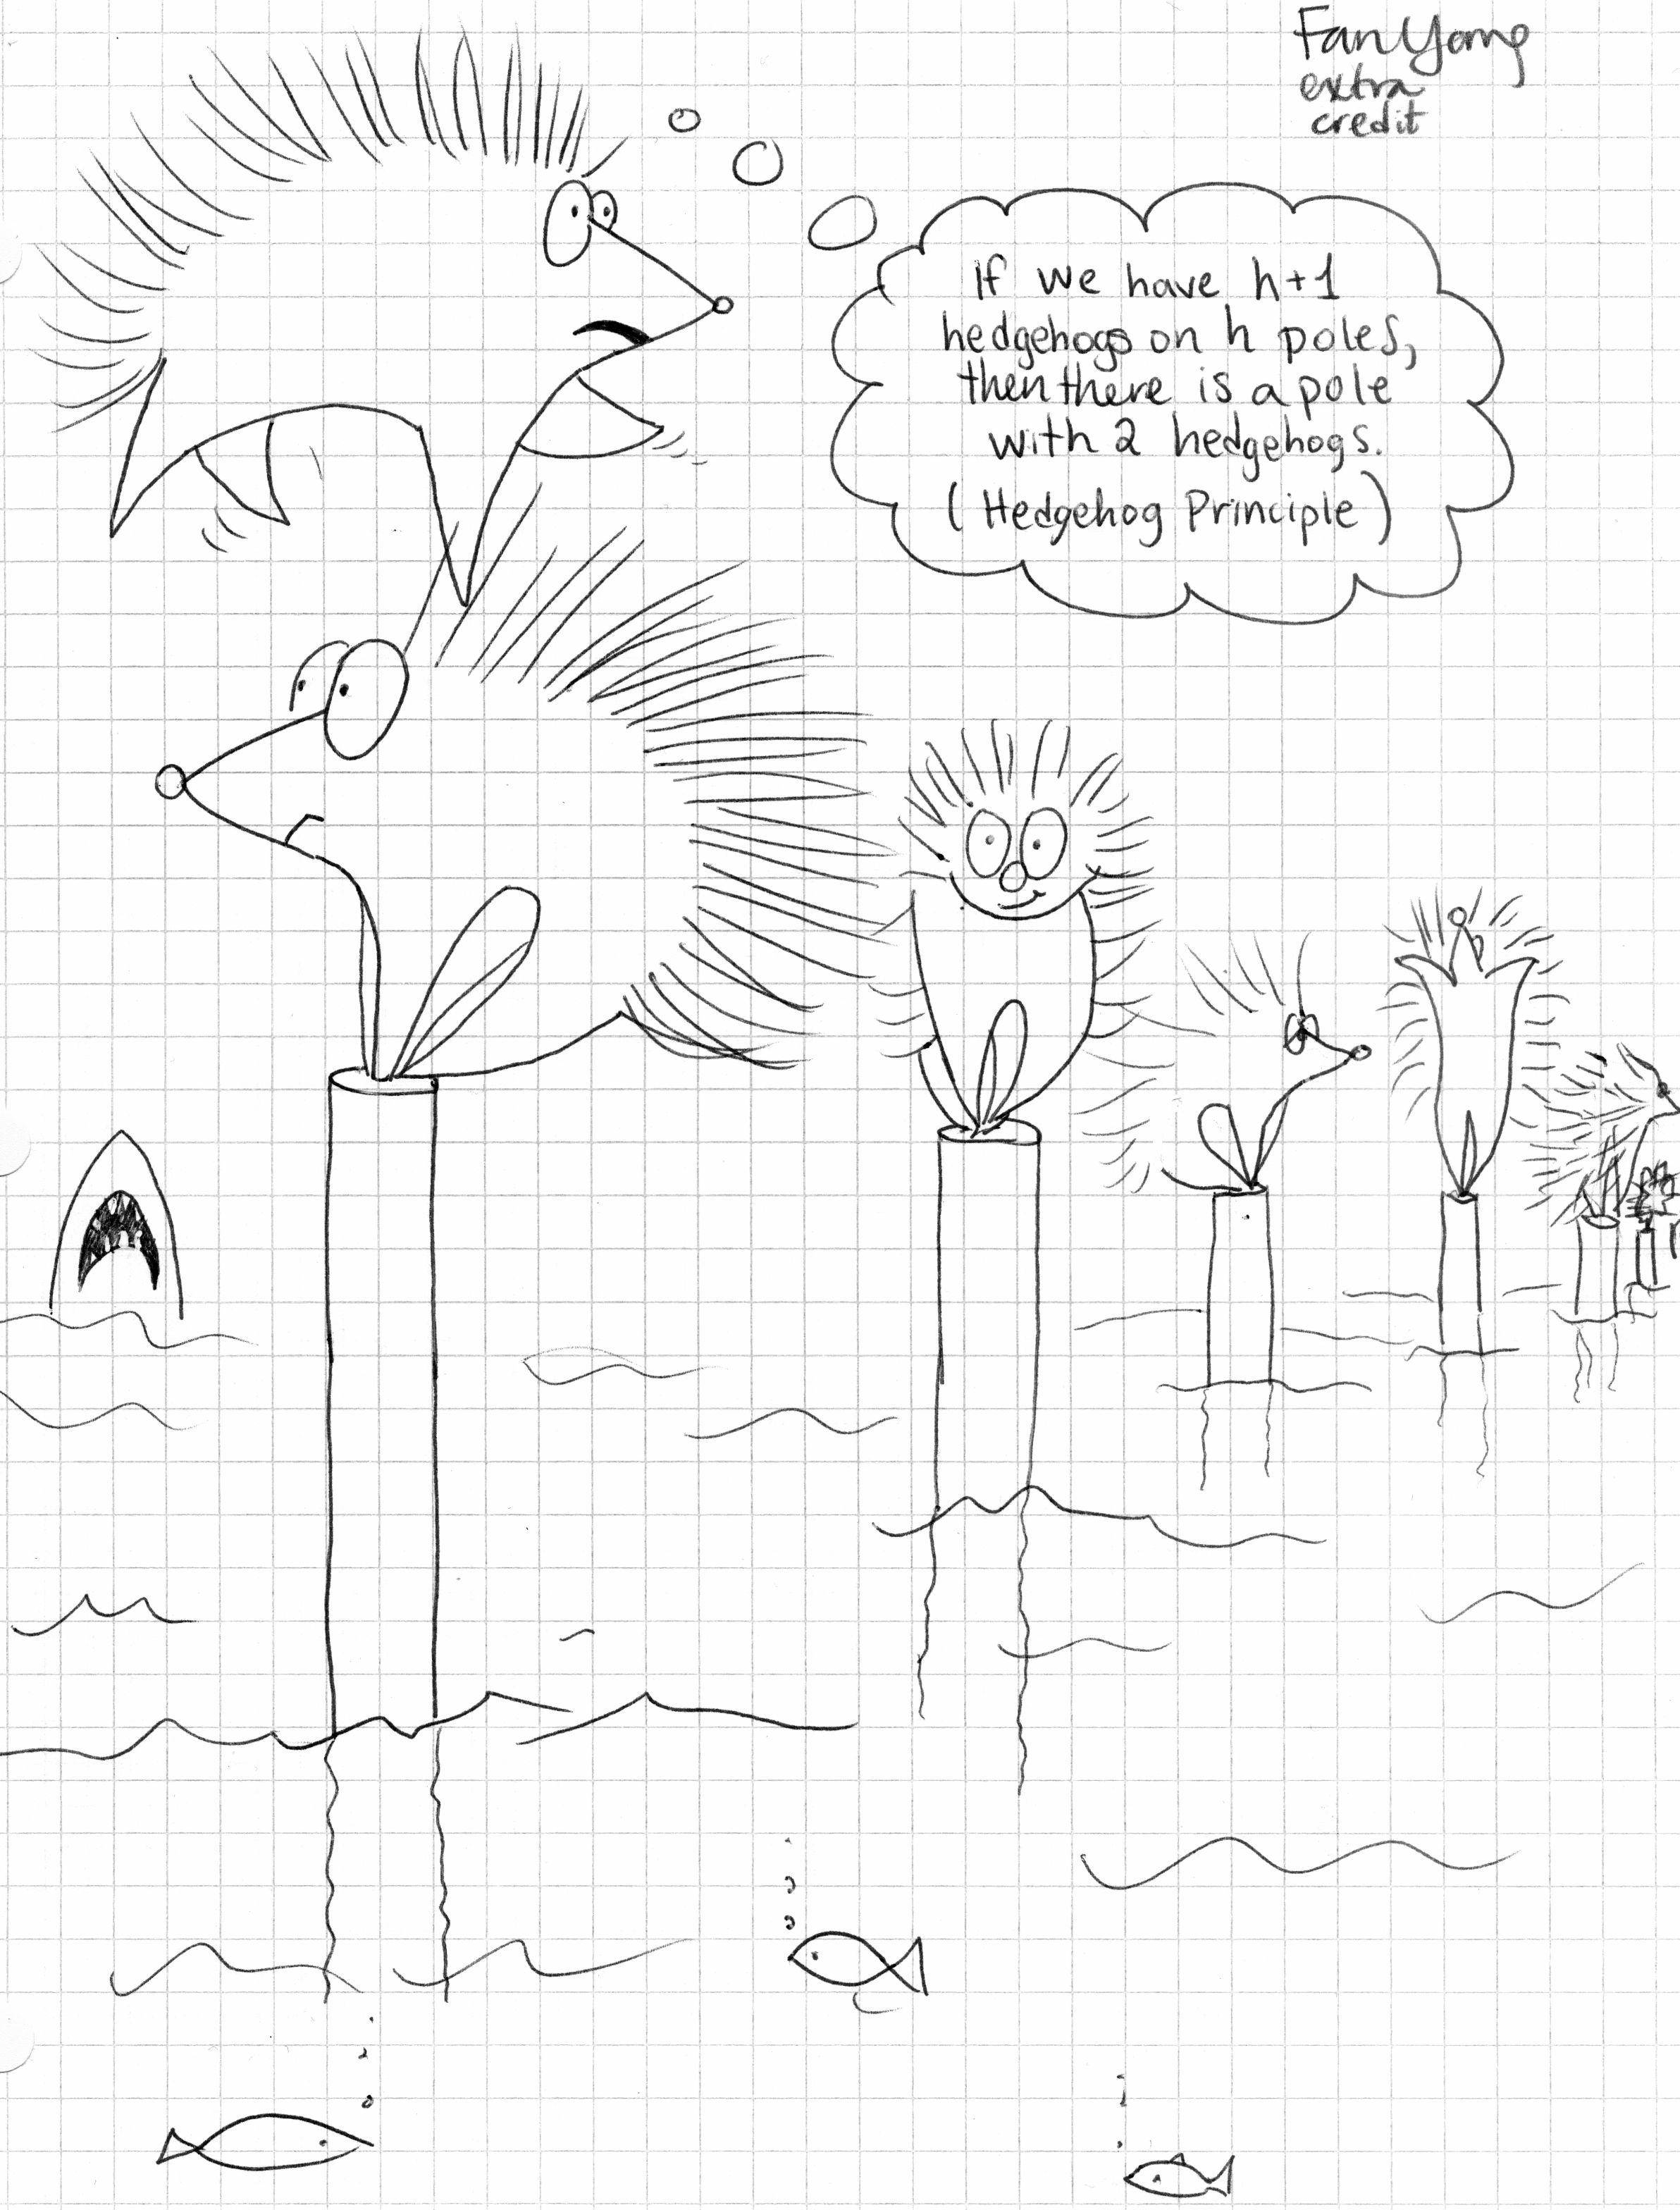 Fan Yang
extra
credit
If we have h+1
hedgehogs on h poles,
then there is a pole
with 2 hedgehogs.
(Hedgehog Principle)